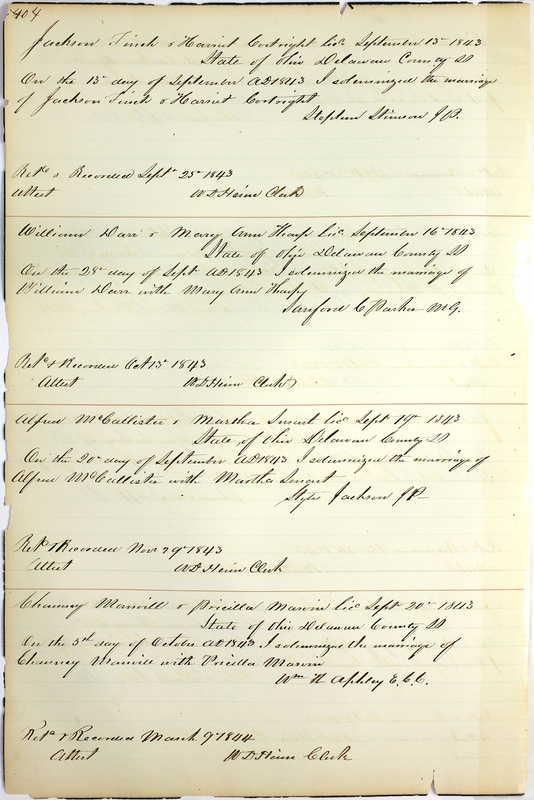 404
Jackson Finch & Harriet Cortright Lic. September 15th 1843
State of Ohio Delaware County SS
On the 15th day of September AD 1843 I solemnized the marriage
of Jackson Finch & Harriet Cortright
Stephen Stimson J.P.
Retd & Recorded Septr 25th 1843
Attest W D Heim Clerk
William Darr & Mary Ann Tharp Lic. September 16th 1843
State of Ohio Delaware County SS
On the 28th day of Sept AD 1843 I solemnized the marriage of
William Darr with Mary Ann Tharp
Sanford C Parker M.G.
Retd & Recorded Oct 15th 1843
Attest W D Heim Clerk
Alfred McCallister & Martha Smart Lic Sept 19th 1843
State of Ohio Delaware County SS
On the 20th day of September AD 1843 I solemnized the marriage of
Alfred McCallister with Martha Smart
Jackson J P
Retd & Recorded Novr 29th 1843
Attest W D Heim Clerk
Chauncy Manvill & Pricilla Marvin Lic Sept 20th 1843
State of Ohio Delaware County SS
On the 5th day of October AD 1843 I solemnized the marriage of
Chauncy Manvill with Pricilla Marvin
Wm H Aphley E.C.C.
Retd & Recorded March 9th 1844
Attest W D Heim Clerk